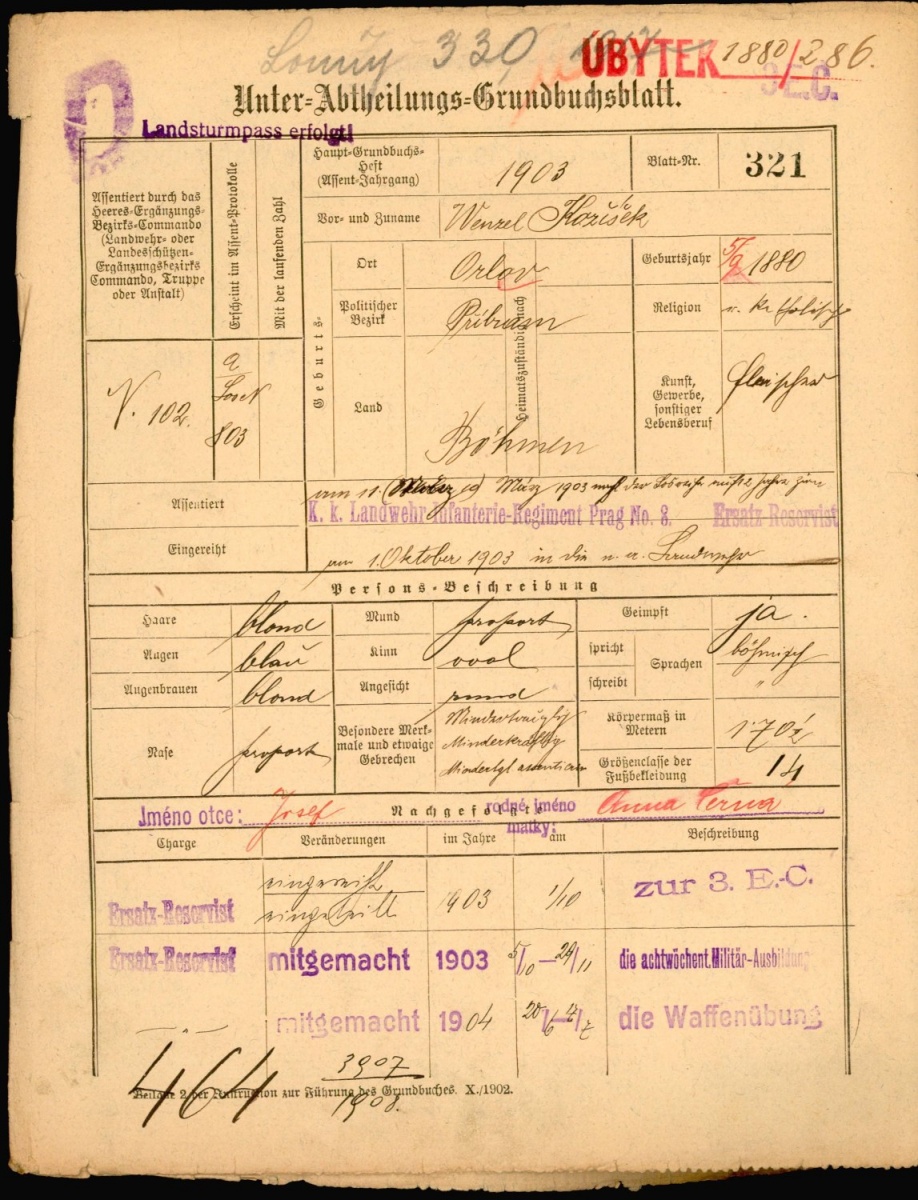 330
ÚBYTEK 1880/286.
3 E.C.
Unter-Abtheilungs-Grundbuchsblatt.
Landsturmpass erfolgt!
Assentiert durch das Heeres-Ergänzungs-Bezirks-Commando (Landwehr- oder Landesschützen-Ergänzungsbezirks Commando, Truppe oder Anstalt)
Erscheint im Assent-Protokolle
Mit der laufenden Zahl
Haupt-Grundbuchs-Heft (Assent-Jahrgang) 1903
Blatt-Nr. 321
Vor- und Zuname Wenzel Kozíšek
Geburts-
Ort Orlov
Geburtsjahr 5/9 1880
Politischer Bezirk Přibram
Heimatszuständig nach
Religion r. katholisch
Land Böhmen
Kunst, Gewerbe, sonstiger Lebensberuf fleischer
N. 102.
a
803
Assentiert am 11. März 1903
K. k. Landwehr-Infanterie-Regiment Prag No. 8. Ersatz-Reservist
Eingereiht am 1. Oktober 1903 in die Landwehr
Persons-Beschreibung
Haare blond
Mund proport
Geimpft ja.
Augen blau
Kinn oval
spricht
schreibt
Sprachen böhmisch "
Augenbrauen blond
Angesicht rund
Nase proport
Besondere Merkmale und etwaige Gebrechen Mindertauglich
Körpermaß in Metern 1·70½
Größenclasse der Fußbekleidung 14
Jméno otce: Josef
Nachgefolgte
rodné jméno matky: Anna Černá
Charge Veränderungen im Jahre am Beschreibung
Ersatz-Reservist eingereiht eingeteilt 1903 1/10 zur 3. E.-C.
Ersatz-Reservist mitgemacht 1903 5/10–29/11 die achtwöchent. Militär-Ausbildung
–"– mitgemacht 1904 20/6–17/7 die Waffenübung
464
3907
1908.
Beilage 2 der Instruction zur Führung des Grundbuches. X./1902.